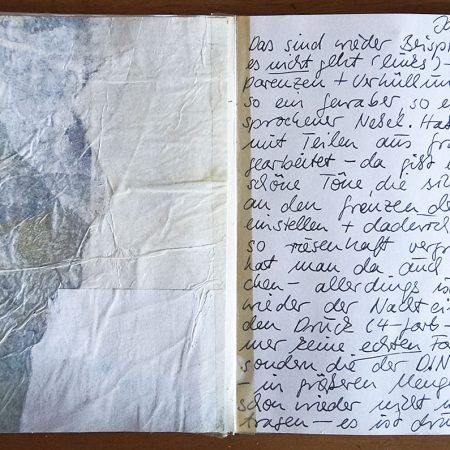 Das sind wieder Beispi
es nicht geht (eines)-
parenzen + Verhüllun
so ein so e
sprochener Nebel. Ha
mit Teilen aus
gearbeitet – da gibt e
schöne Töne, die si
an den Grenzen de
einstellen +
so riesenhaft vergr
hat man da auch
chen – allerdings is
wieder der Nachtei
den Druck (4-farb-
mer keine echten Fa
sondern die der DIN
– in größeren Meng
schon wieder nicht
tragen – es ist dru